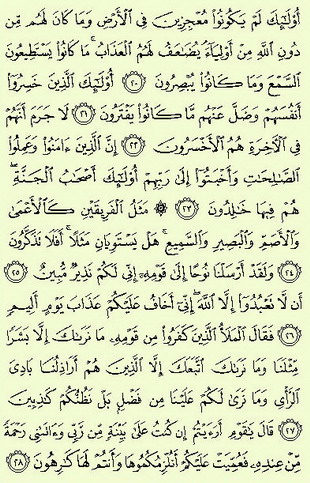 أُو۟لَـٰٓئِكَ لَمْ يَكُونُوا۟ مُعْجِزِينَ فِى ٱلْأَرْضِ وَمَا كَانَ لَهُم مِّن
دُونِ ٱللَّهِ مِنْ أَوْلِيَآءَ ۘ يُضَـٰعَفُ لَهُمُ ٱلْعَذَابُ ۚ مَا كَانُوا۟ يَسْتَطِيعُونَ
ٱلسَّمْعَ وَمَا كَانُوا۟ يُبْصِرُونَ ﴿٢٠﴾ أُو۟لَـٰٓئِكَ ٱلَّذِينَ خَسِرُوٓا۟
أَنفُسَهُمْ وَضَلَّ عَنْهُم مَّا كَانُوا۟ يَفْتَرُونَ ﴿٢١﴾ لَا جَرَمَ أَنَّهُمْ
فِى ٱلْـَٔاخِرَةِ هُمُ ٱلْأَخْسَرُونَ ﴿٢٢﴾ إِنَّ ٱلَّذِينَ ءَامَنُوا۟ وَعَمِلُوا۟
ٱلصَّـٰلِحَـٰتِ وَأَخْبَتُوٓا۟ إِلَىٰ رَبِّهِمْ أُو۟لَـٰٓئِكَ أَصْحَـٰبُ ٱلْجَنَّةِ ۖ
هُمْ فِيهَا خَـٰلِدُونَ ﴿٢٣﴾ ۞ مَثَلُ ٱلْفَرِيقَيْنِ كَٱلْأَعْمَىٰ
وَٱلْأَصَمِّ وَٱلْبَصِيرِ وَٱلسَّمِيعِ ۚ هَلْ يَسْتَوِيَانِ مَثَلًا ۚ أَفَلَا تَذَكَّرُونَ
﴿٢٤﴾ وَلَقَدْ أَرْسَلْنَا نُوحًا إِلَىٰ قَوْمِهِۦٓ إِنِّى لَكُمْ نَذِيرٌ مُّبِينٌ ﴿٢٥﴾
أَن لَّا تَعْبُدُوٓا۟ إِلَّا ٱللَّهَ ۖ إِنِّىٓ أَخَافُ عَلَيْكُمْ عَذَابَ يَوْمٍ أَلِيمٍ
﴿٢٦﴾ فَقَالَ ٱلْمَلَأُ ٱلَّذِينَ كَفَرُوا۟ مِن قَوْمِهِۦ مَا نَرَىٰكَ إِلَّا بَشَرًا
مِّثْلَنَا وَمَا نَرَىٰكَ ٱتَّبَعَكَ إِلَّا ٱلَّذِينَ هُمْ أَرَاذِلُنَا بَادِىَ
ٱلرَّأْىِ وَمَا نَرَىٰ لَكُمْ عَلَيْنَا مِن فَضْلٍۭ بَلْ نَظُنُّكُمْ كَـٰذِبِينَ
﴿٢٧﴾ قَالَ يَـٰقَوْمِ أَرَءَيْتُمْ إِن كُنتُ عَلَىٰ بَيِّنَةٍ مِّن رَّبِّى وَءَاتَىٰنِى رَحْمَةً
مِّنْ عِندِهِۦ فَعُمِّيَتْ عَلَيْكُمْ أَنُلْزِمُكُمُوهَا وَأَنتُمْ لَهَا كَـٰرِهُونَ ﴿٢٨﴾